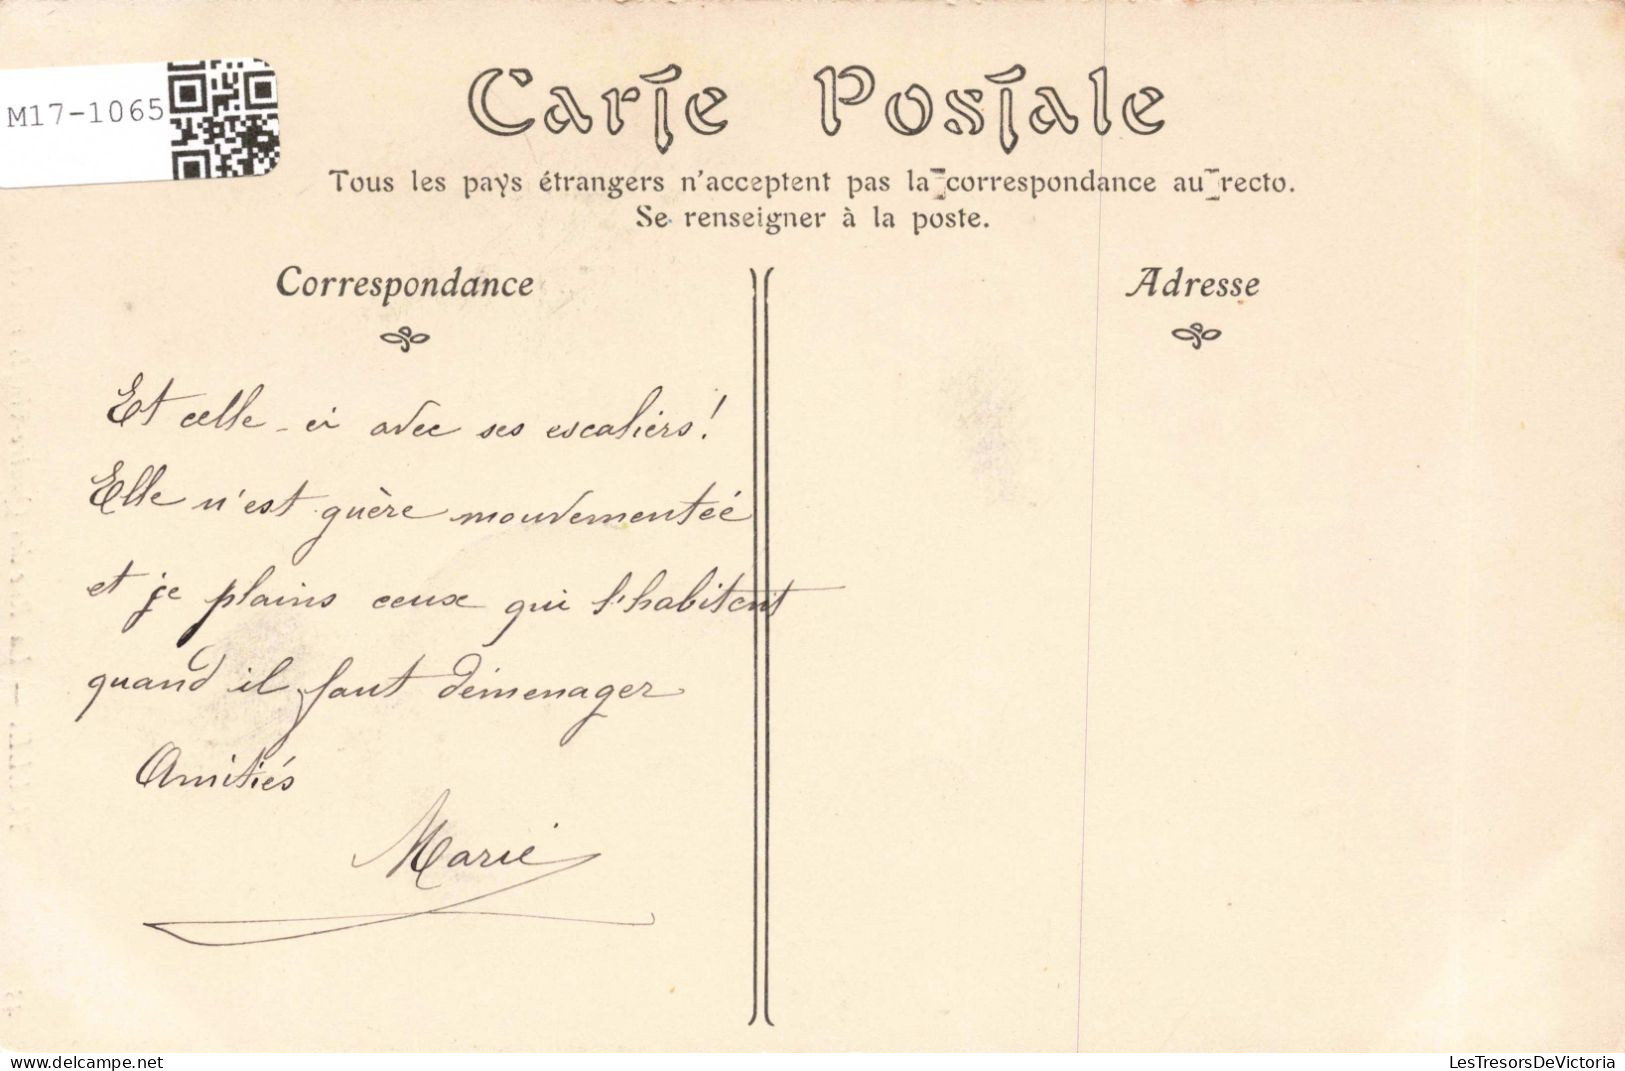 M17-1065
Carte Postale
Tous les pays étrangers n'acceptent pas la correspondance au recto.
Se renseigner à la poste.
Correspondance
Adresse
Et celle-ci avec ses escaliers!
Elle n'est guère mouvementée
et je plains ceux qui l'habitent
quand il faut démenager
Amitiés
Marie
LesTresorsDeVictoria
delcampe.net